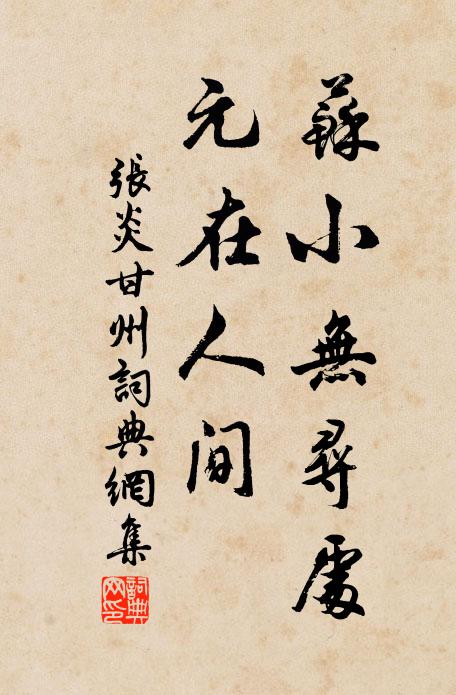 蘇小無尋處
元在人間
張炎甘州詞典網集
詞典網印